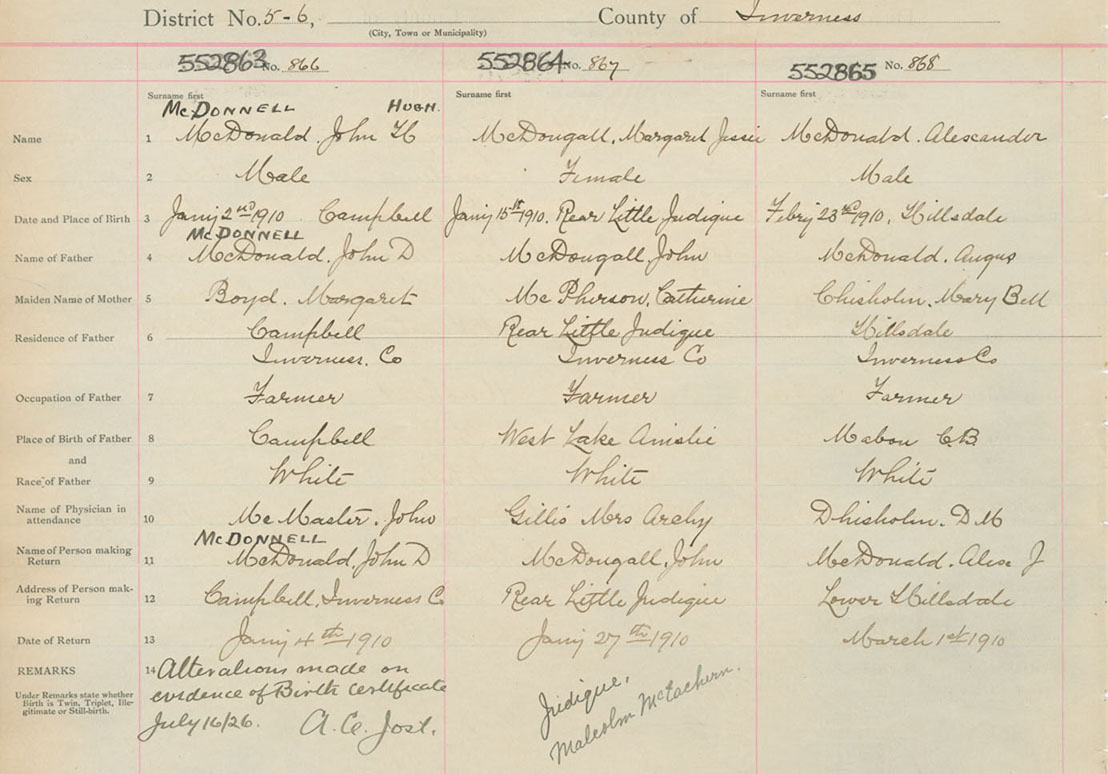 District No. 5-6, County of Inverness
(City, Town or Municipality)
552863 No. 866 552864 No. 867 552865 No. 868
Surname first Surname first Surname first
McDONNELL HUGH.
Name 1 McDonald, John H McDougall, Margaret Jessie McDonald. Alexander
Sex 2 Male Female Male
Date and Place of Birth 3 Jany 2nd 1910 Campbell Jany 15th 1910. Rear Little Judique Febry 23rd 1910, Hillsdale
McDONNELL
Name of Father 4 McDonald. John D McDougall, John McDonald. Angus
Maiden Name of Mother 5 Boyd. Margaret McPherson, Catherine Chisholm. Mary Bell
Residence of Father 6 Campbell Rear Little Judique Hillsdale
Inverness. Co Inverness Co Inverness Co
Occupation of Father 7 Farmer Farmer Farmer
Place of Birth of Father 8 Campbell West Lake Ainslie Mabou C.B
and
Race of Father 9 White White White
Name of Physician in attendance 10 McMaster. John Gillis Mrs Archy Dhisholm. D M
McDONNELL
Name of Person making Return 11 McDonald, John D McDougall, John McDonald. Alex J
Address of Person making Return 12 Campbell, Inverness Co Rear Little Judique Lower Hillsdale
Date of Return 13 Jany 4th 1910 Jany 27th 1910 March 1st 1910
REMARKS 14 Alterations made on
Under Remarks state whether Birth is Twin, Triplet, Illegitimate or Still-birth.
evidence of Birth Certificate
July 16/26. A. C. Jost.
Judique,
Malcolm McEachern.